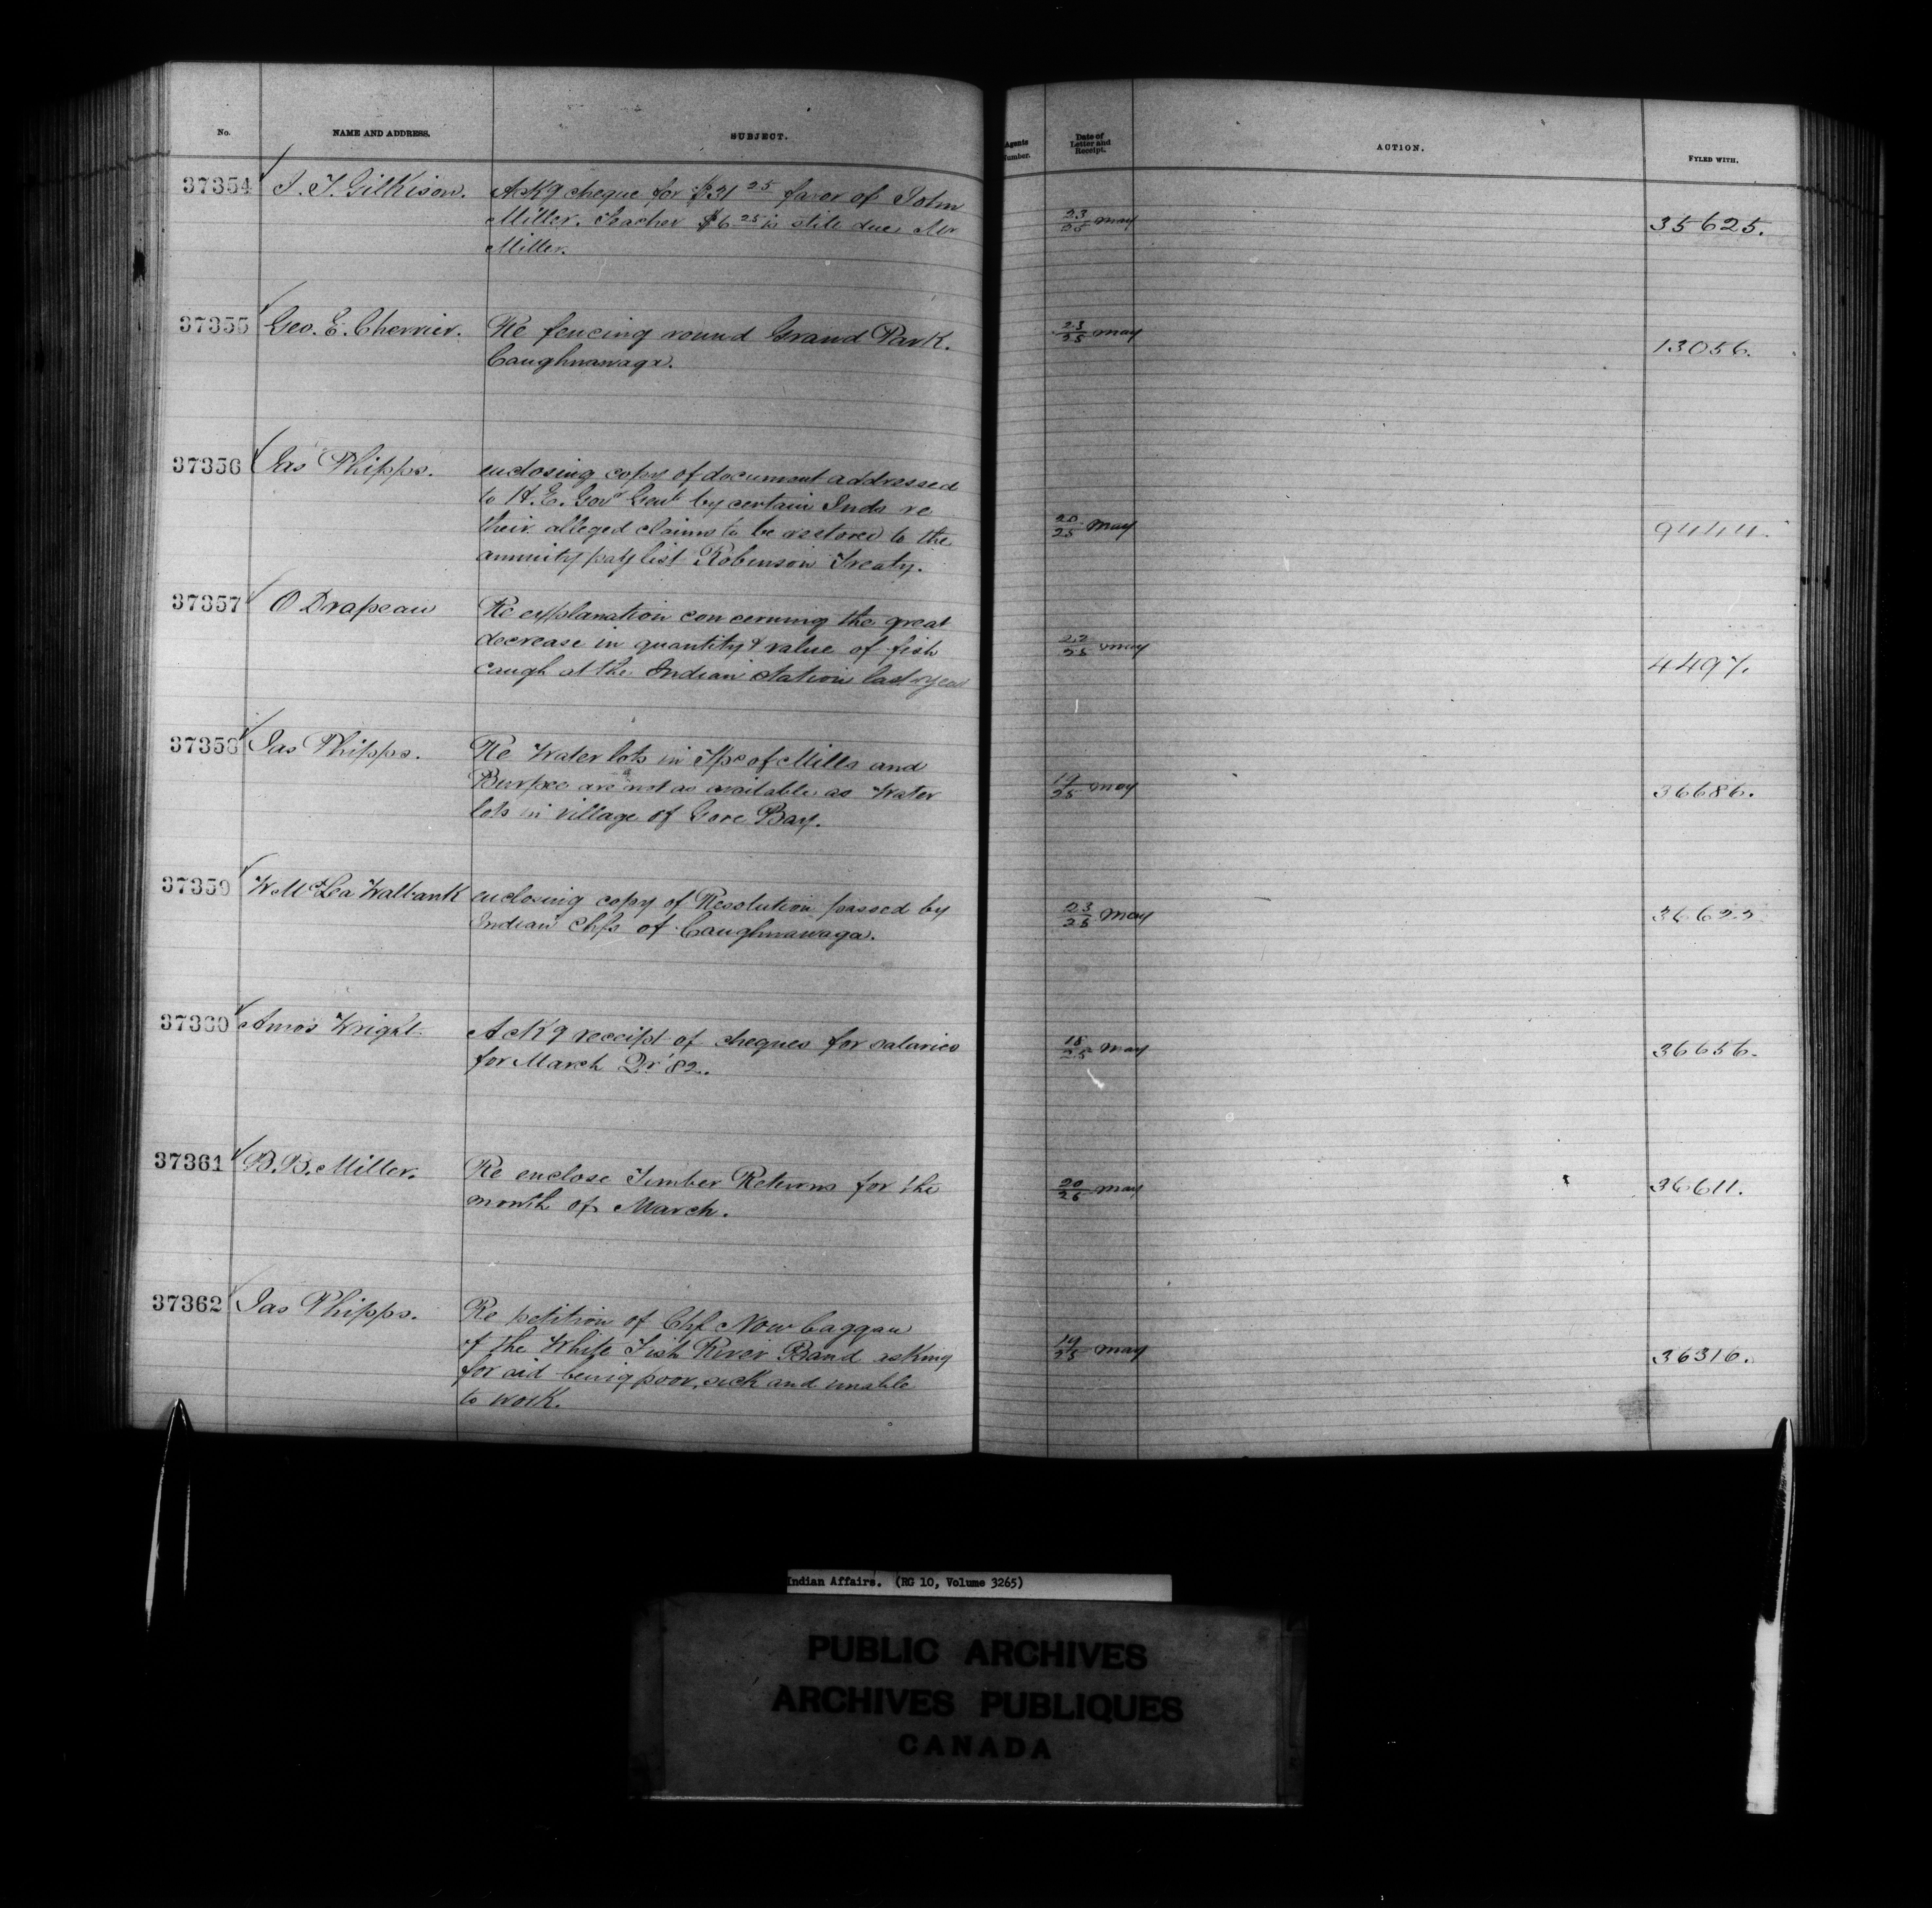 No. NAME AND ADDRESS. SUBJECT. Agents Number. Date of Letter and Receipt. ACTION. FYLED WITH.
37354 J. T. Gilkison. Ackg cheque for $31 25 favor of John
Miller. Teacher $6 25 is still due Mr
Miller.
23/25 May 35625.
37355 Geo. E. Cherrier. Re fencing round Grand Park.
Caughnawaga.
23/25 May 13056.
37356 Jas Phipps. enclosing copy of document addressed
to H. E. Govr Genl by certain Inds re
their alleged claims to be restored to the
annuity pay list Robinson Treaty.
20/25 May 9444.
37357 O Drapeau Re explanation concerning the great
decrease in quantity & value of fish
caugh at the Indian station last year
22/25 May 4497.
37358 Jas Phipps. Re Water lots in Tps of Mills and
Burpee are not as available as Water
lots in village of Gore Bay.
19/25 May 36686.
37359 W McLea Walbank enclosing copy of Resolution passed by
Indian Chfs of Caughnawaga.
23/25 May 36622
37360 Amos Wright. Ackg receipt of cheques for salaries
for March Qr '82.
18/25 May 36656.
37361 B. B. Miller. Re enclose Timber Returns for the
month of March.
20/26 May 36611.
37362 Jas Phipps. Re petition of Chf Now Caggaw
of the White Fish River Band asking
for aid being poor, sick and unable
to work.
19/25 May 36316.
Indian Affairs. (RG 10, Volume 3265)
PUBLIC ARCHIVES
ARCHIVES PUBLIQUES
CANADA